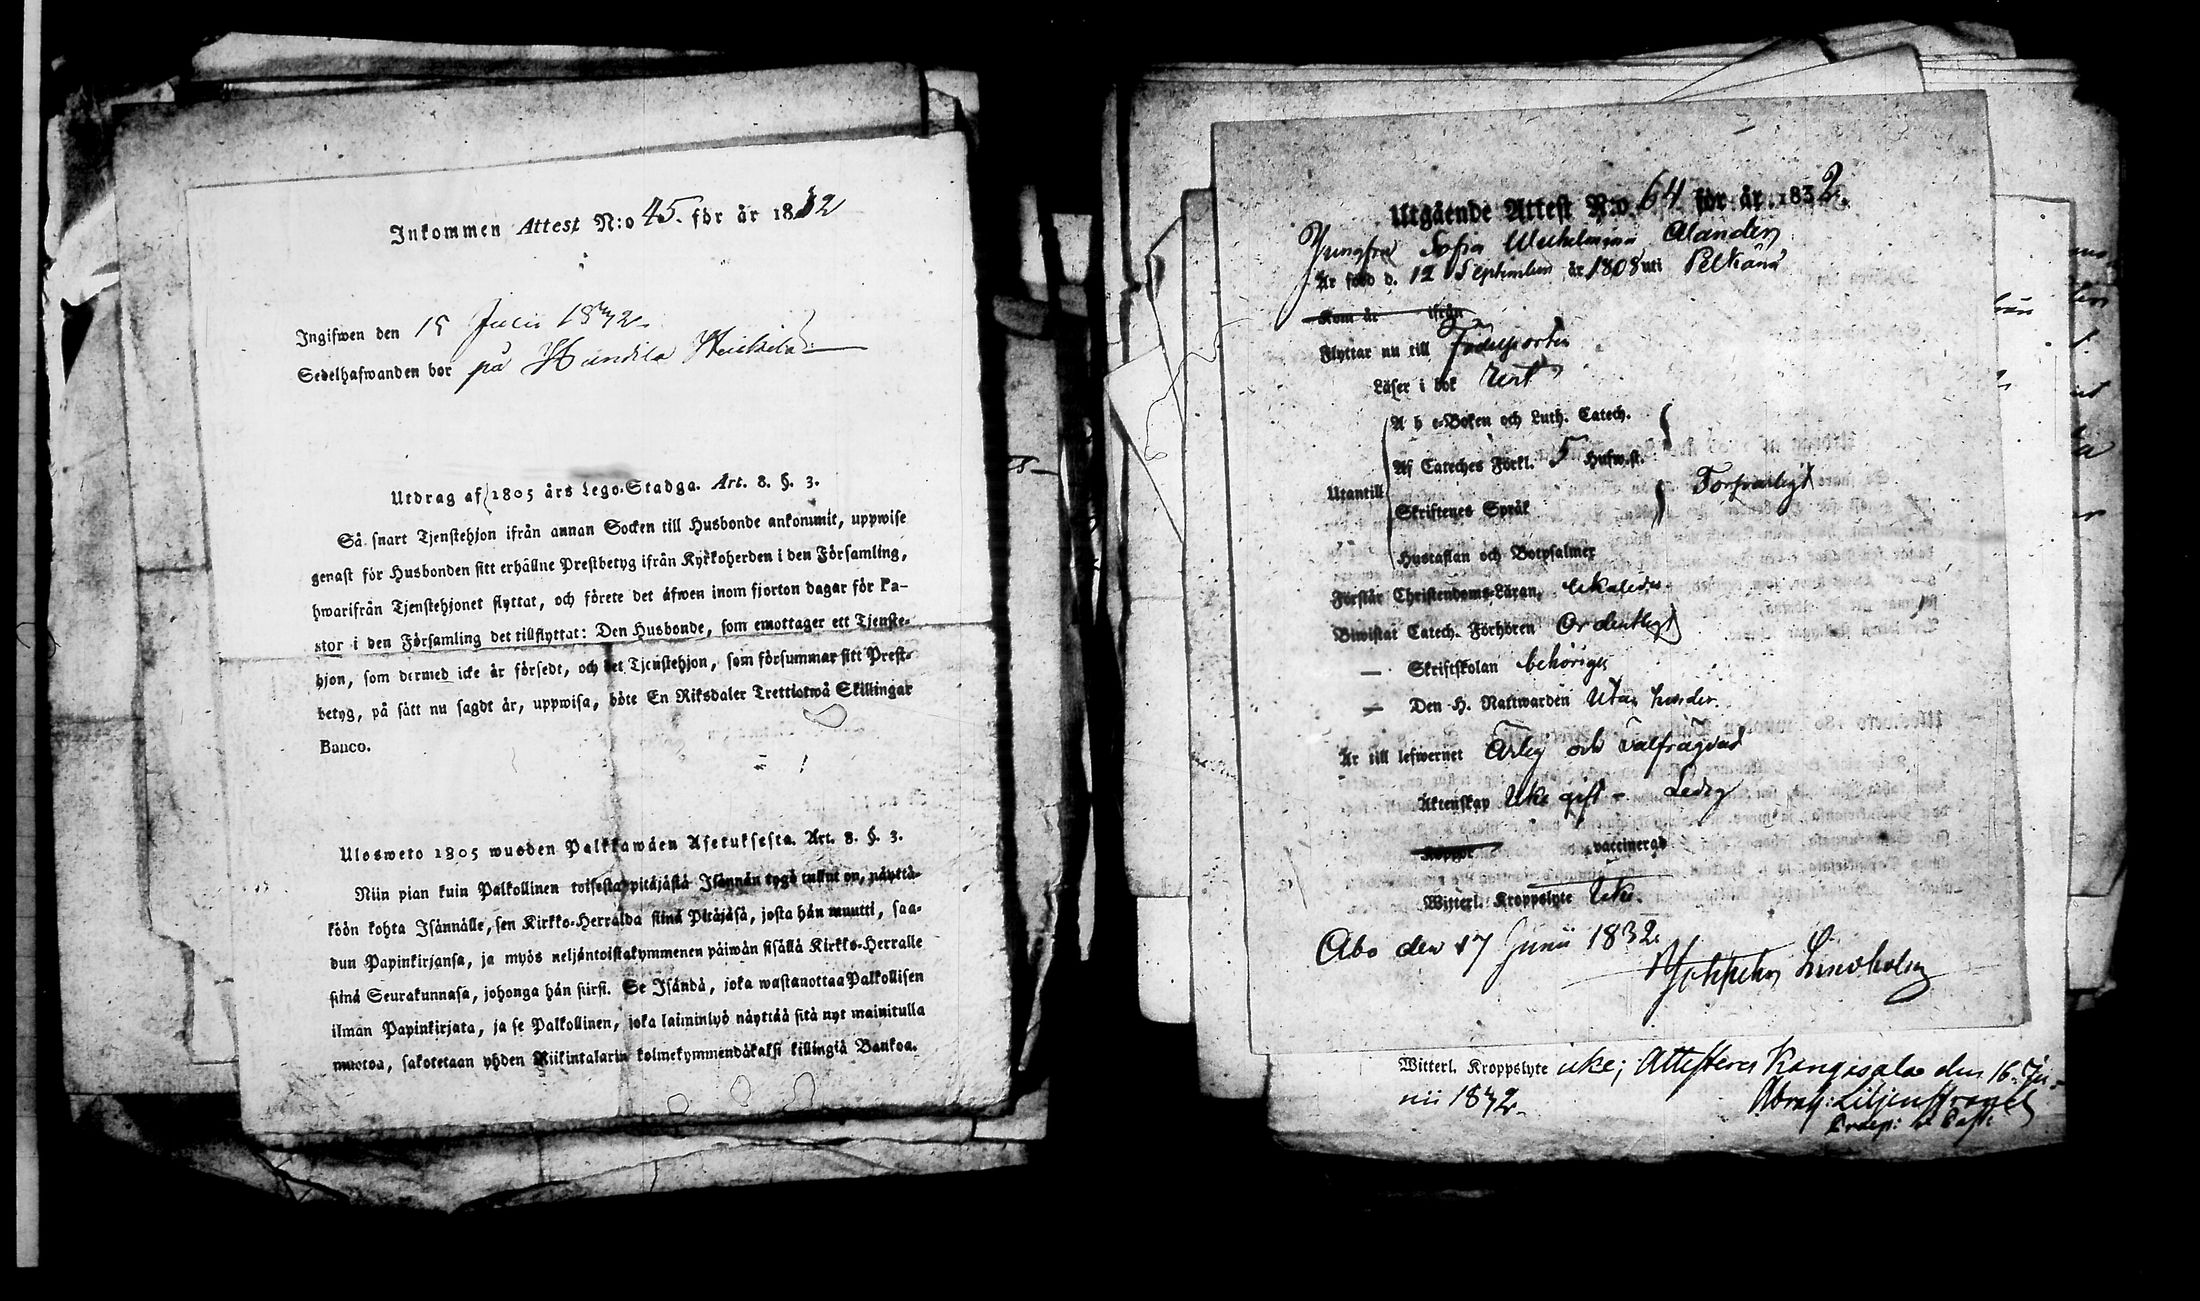 Inkommen Attest N:o 45. för år 1832
Ingifwen den 15 Julii 1832.
Sedelhafwanden bor på Heickilä
Utdrag af 1805 års Lego-Stadga. Art. 8. §. 3.
Så snart Tjenstehjon ifrån annan Socken till Husbonde ankommit, uppwise
genast för Husbonden sitt erhållne Prestbetyg ifrån Kyrkoherden i den Församling,
hwarifrån Tjenstehjonet flyttat, och förete det äfwen inom fjorton dagar för Pa-
stor i den Församling det tillflyttat: Den Husbonde, som emottager ett Tjenste-
hjon, som dermed icke är försedt, och det Tjenstehjon, som försummar sitt Prest-
betyg, på sätt nu sagdt är, uppwisa, böte En Riksdaler Trettiotwå Skillingar
Banco.
Ulosweto 1805 wuoden Palkkawäen Asetuksesta. Art. 8. §. 3.
Niin pian kuin Palkollinen toisesta pitäjästä Isännän tygö tullut on, näyttä-
köön kohta Isännälle, sen Kirkko-Herralda siinä Pitäjäsä, josta hän muutti, saa-
dun Papinkirjansa, ja myös neljäntoistakymmenen päiwän sisällä Kirkko-Herralle
siinä Seurakunnasa, johonga hän siirsi. Se Isändä, joka wastanottaa Palkollisen
ilman Papinkirjata, ja se Palkollinen, joka laiminlyö näyttää sitä nyt mainitulla
muotoa, sakotetaan yhden Riikintalarin kolmekymmendäkaksi killingiä Bankoa.
Utgående Attest N:o 64 för år 1832.
Jungfru Sofia Wilhelmina Alander
Är född d. 12 September år 1808 uti Pelkäne
Kom år ifrån
Flyttar nu till Födelseorten
Läser i bok rent
A b c-Boken och Luth. Catech.
Af Cateches Förkl. 5 Hufwst.
Utantill
Skriftenes Språk Försvarligt
Hustaflan och Botpsalmer
Förstår Christendoms-Läran,
Biwistat Catech. Förhören Ordentligt
— Skriftskolan behörigen
— Den H. Nattwarden utan hinder.
Är till lefwernet Ärlig och välfrägdad
Äktenskap Icke gift – Ledig
Koppor vaccinerad
Witterl. Kroppslyte Icke.
Åbo den 17 Junii 1832.
Lindholm
Witterl. Kroppslyte icke; Attesterar Kangasala den 16. Ju-
nii 1832.
Abrah: Liljenstrand
Praep: & Past: